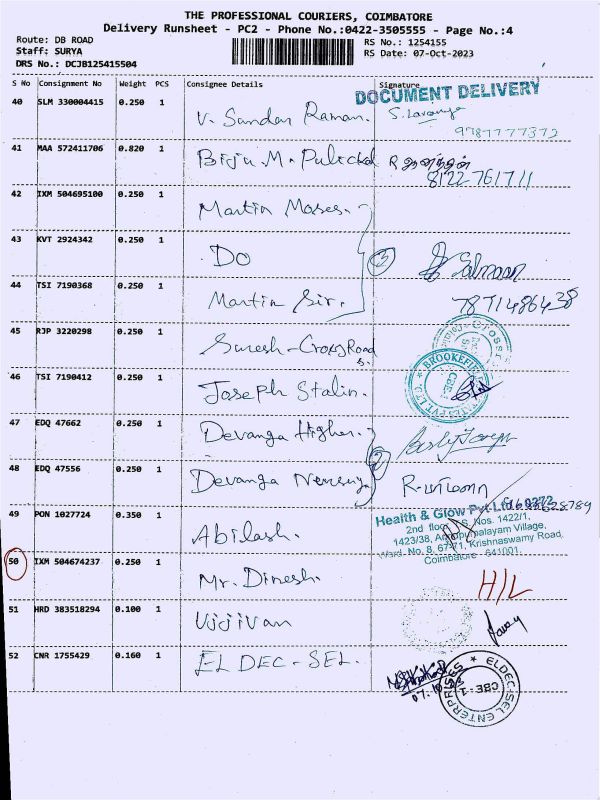 THE PROFESSIONAL COURIERS, COIMBATORE
Delivery Runsheet - PC2 - Phone No.:0422-3505555 - Page No.:4
Route: DB ROAD
Staff: SURYA
DRS No.: DCJB125415504
RS No.: 1254155
RS Date: 07-Oct-2023
S No Consignment No Weight PCS Consignee Details Signature
DOCUMENT DELIVERY
40 SLM 330004415 0.250 1 V. Sundar Raman. S. Lavanya
9787777372
41 MAA 572411706 0.820 1 Biju. M. Pulickal R
8122 761711
42 IXM 504695100 0.250 1 Martin Moses.
43 KVT 2924342 0.250 1 Do 3 Salmaan
44 TSI 7190368 0.250 1 Martin Sir. 7871486438
45 RJP 3220298 0.250 1 Suresh - Road
46 TSI 7190412 0.250 1 Joseph Stalin.
BROOKEFIE
CBE-1
47 EDQ 47662 0.250 1 Devanga Higher.
48 EDQ 47556 0.250 1 Devanga 2 R.
49 PON 1027724 0.350 1 Abilash.
Health & Glow Pvt Ltd
2nd floor, S. Nos. 1422/1,
1423/38, Ammapalayam Village,
Ward No. 8, 67/71, Krishnaswamy Road,
Coimbatore 641001.
50 IXM 504674237 0.250 1 Mr. Dinesh. H/L
51 HRD 383518294 0.100 1 Vijivan
52 CNR 1755429 0.160 1 ELDEC-SEL.
07.10.23
ELDEC-SEL ENTERPRISES
CBE-1